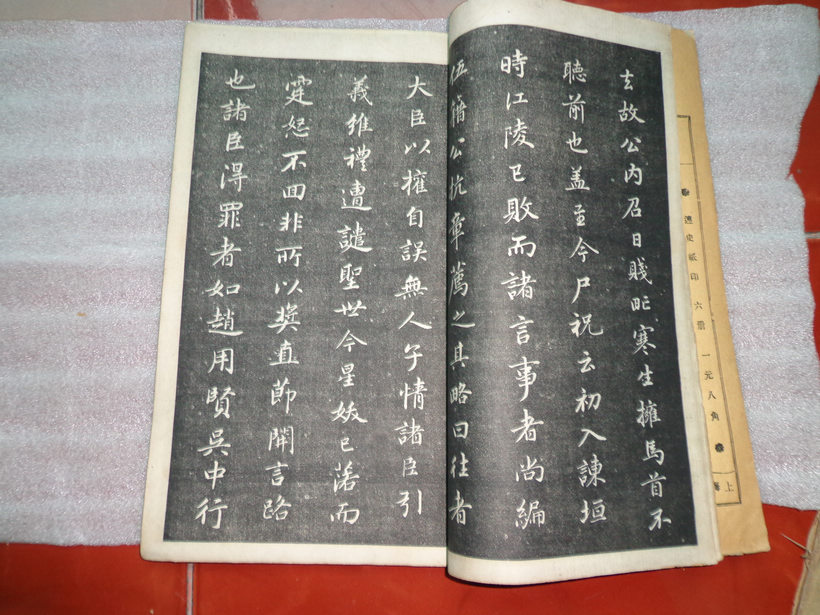 去故公内召日賤甿寒生擁馬首不
聽前也盖至今尸祝云初入諫垣
時江陵已敗而諸言事者尚編
伍籍公抗章薦之其略曰往者
大臣以擁自誤無人子情諸臣引
義維禮遭譴聖世今星妖已落而
霆怒不回非所以奨直節開言路
也諸臣得罪者如趙用賢吳中行
連史紙印 六册 一元八角
上